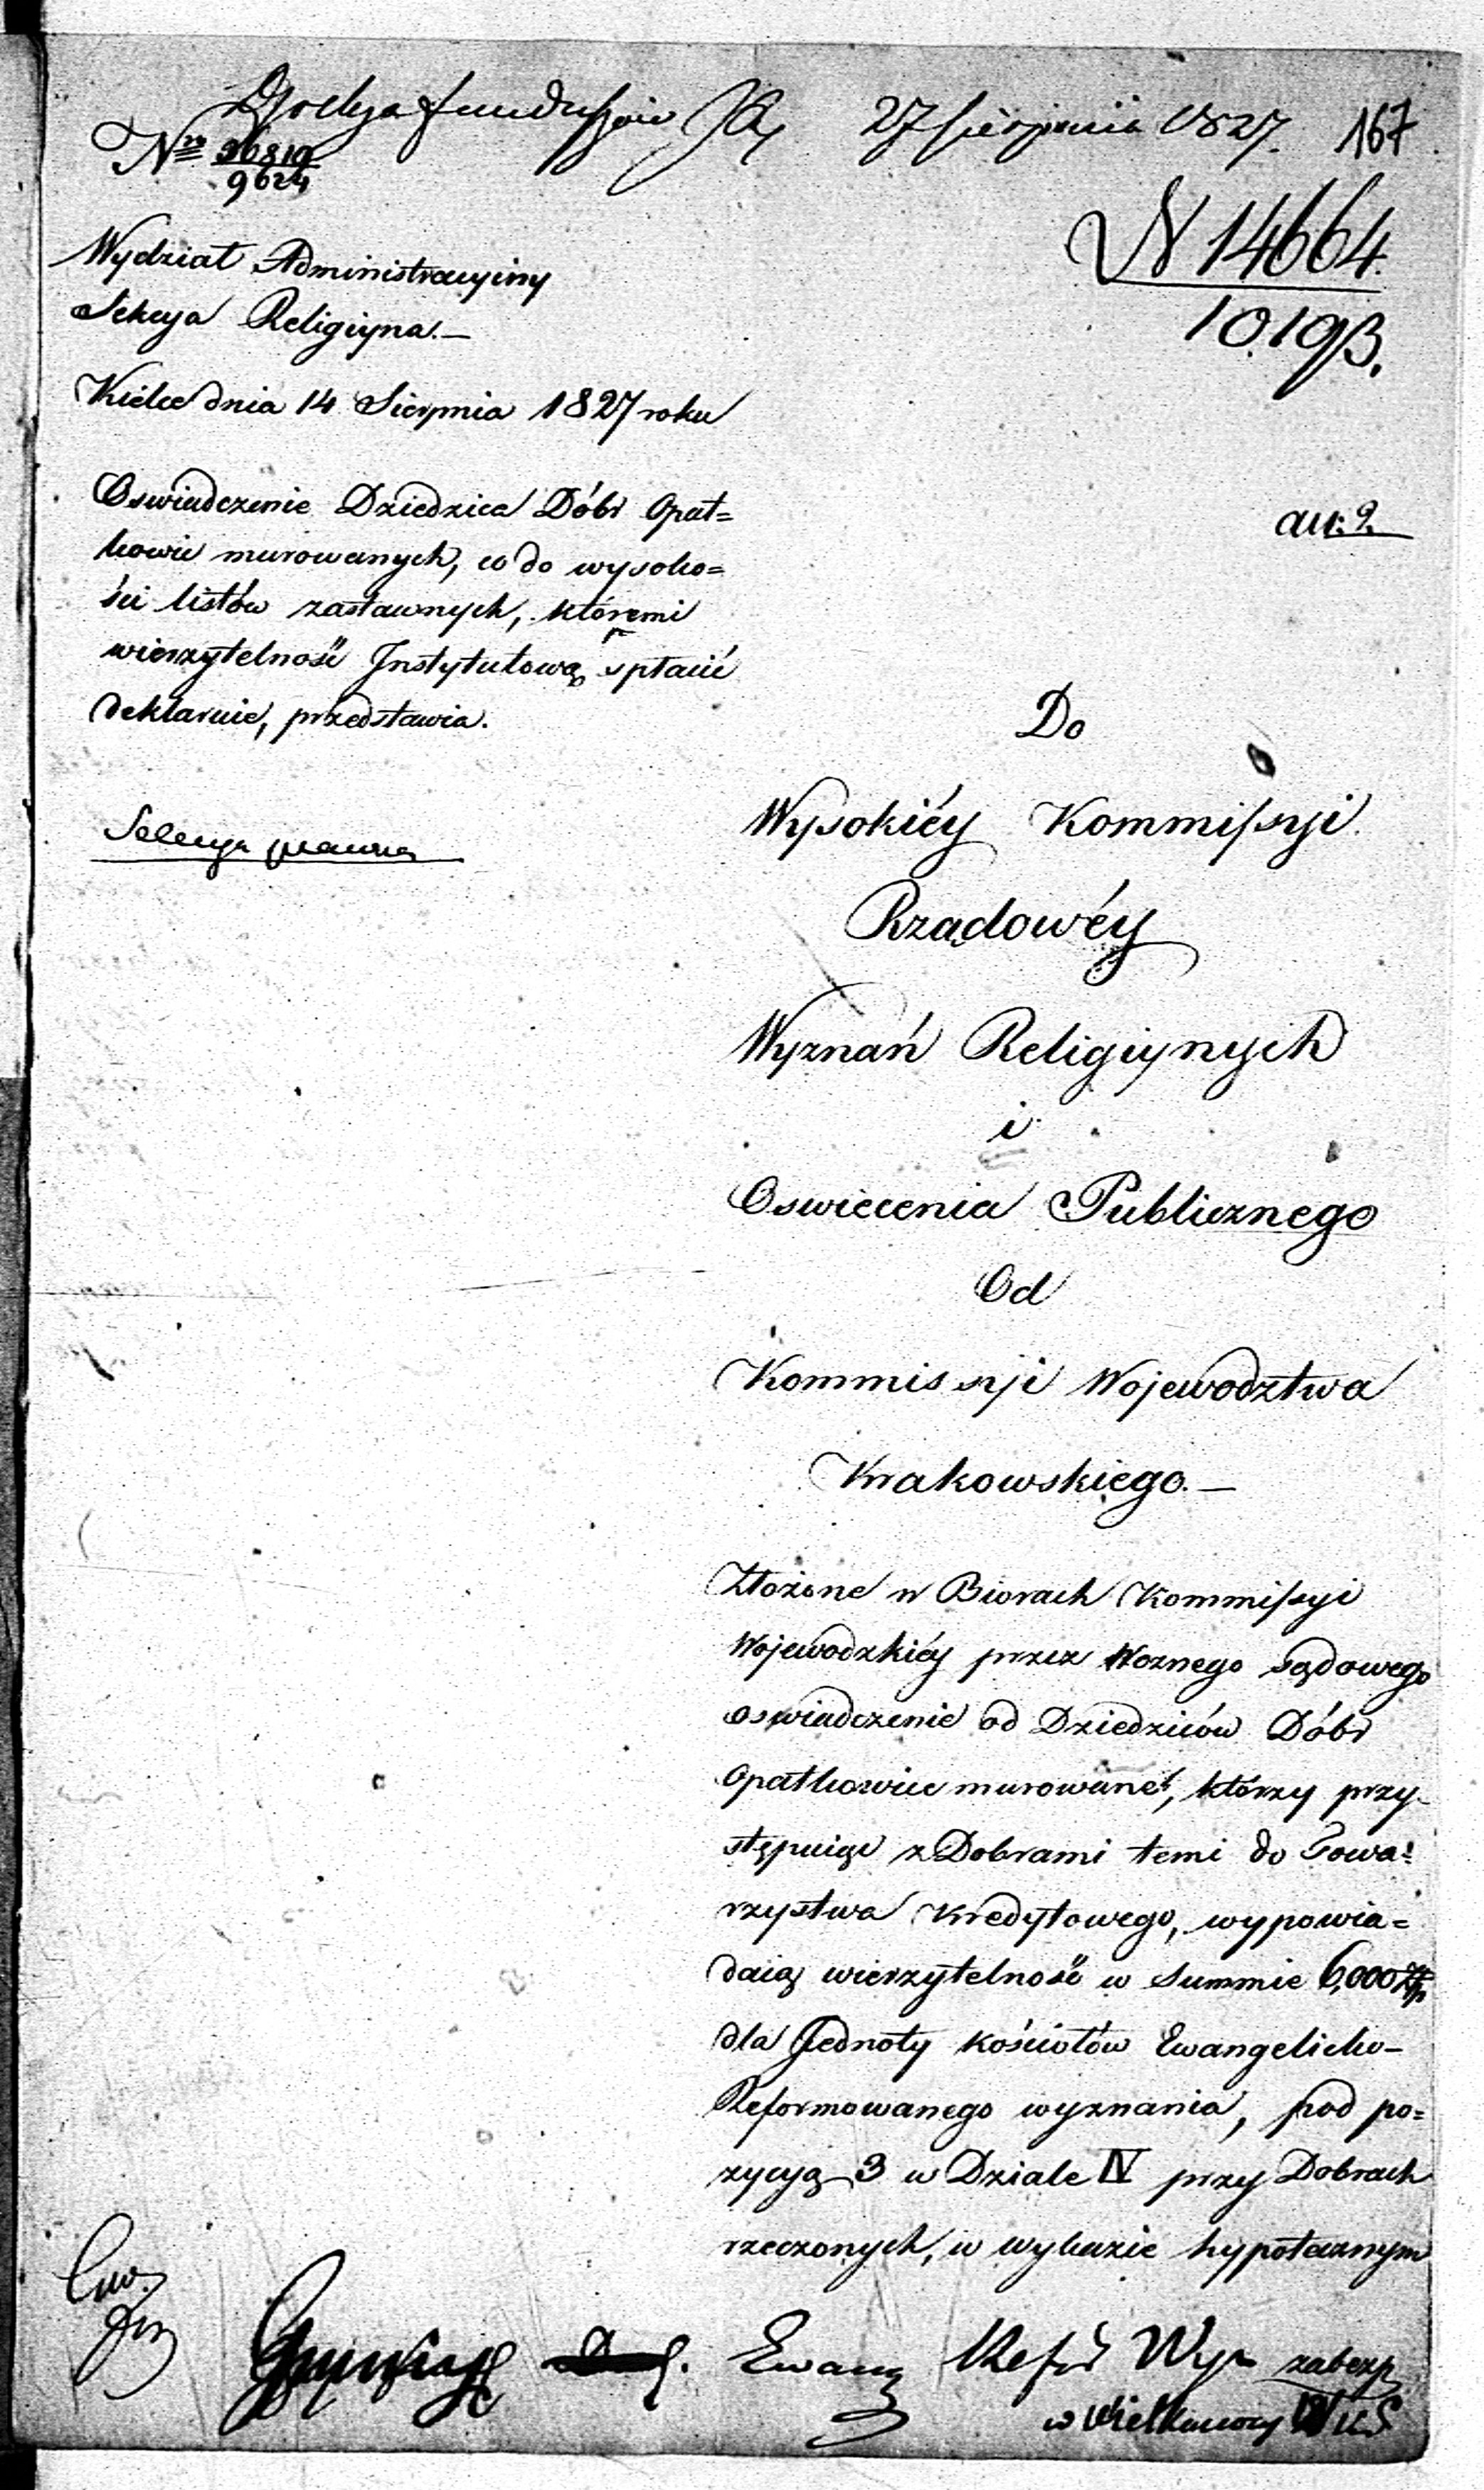 27 sierpnia 1827. 167
Nro 36819
9624
N 14664.
10193.
Wydział Administracyiny
Sekcya Religiyna.—
Kielce dnia 14 Sierpnia 1827 roku
Oswiadczenie Dziedzica Dóbr Opat=
kowic murowanych, co do wysoko=
ści listów zastawnych, któremi
wierzytelność Instytutową spłacić
deklaruie, przedstawia.
Sekcya prawna
Do
Wysokiéy Kommissyi
Rządowéy
Wyznań Religiynych
i
Oswiecenia Publicznego
Od
Kommissyi Wojewodztwa
Krakowskiego.—
Złożone w Biorach Kommissyi
Wojewodzkiéy przez Woznego sądowego
oswiadczenie od Dziedziców Dóbr
Opatkowice murowane, którzy przy-
stępuiąc z Dobrami temi do Towa=
rzystwa Kredytowego, wypowia=
daią wierzytelność w Summie 6,000 Złp
dla Jednoty kościołów Ewangelicko-
Reformowanego wyznania, pod po=
zycyą 3 w Dziale IV przy Dobrach
rzeczonych, w wykazie hypotecznym
Ewang Refor Wyz zabezp